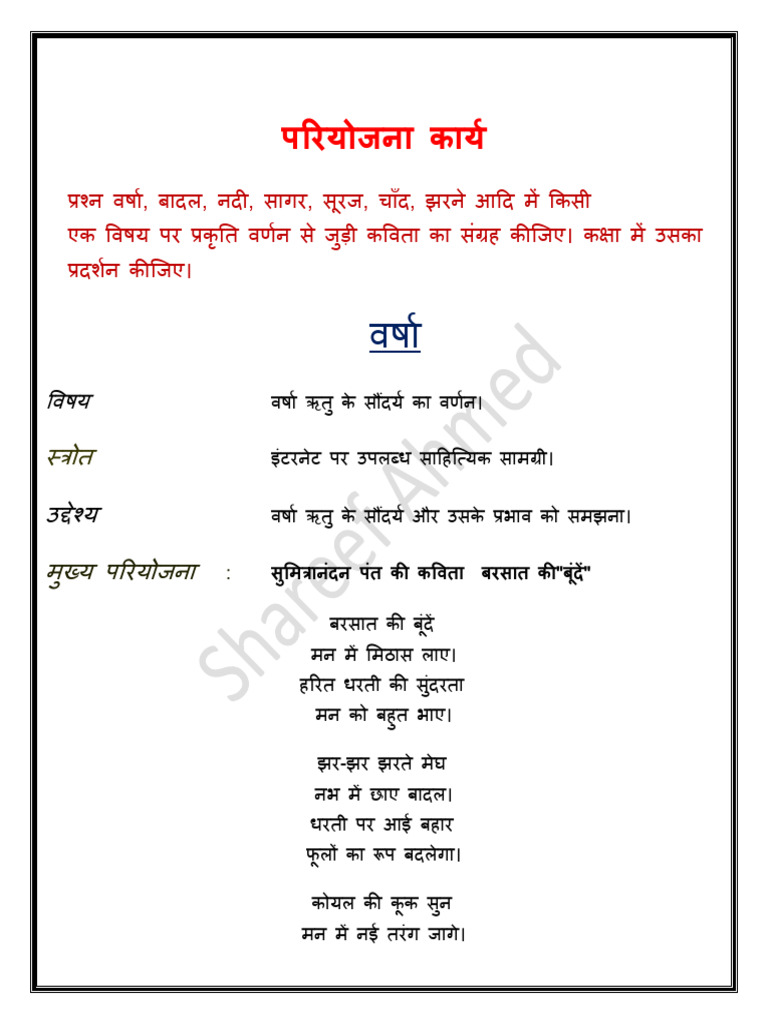 परियोजना कार्य
प्रश्न वर्षा, बादल, नदी, सागर, सूरज, चाँद, झरने आदि में किसी
एक विषय पर प्रकृति वर्णन से जुड़ी कविता का संग्रह कीजिए। कक्षा में उसका
प्रदर्शन कीजिए।
वर्षा
विषय वर्षा ऋतु के सौंदर्य का वर्णन।
स्त्रोत इंटरनेट पर उपलब्ध साहित्यिक सामग्री।
उद्देश्य वर्षा ऋतु के सौंदर्य और उसके प्रभाव को समझना।
मुख्य परियोजना : सुमित्रानंदन पंत की कविता बरसात की"बूंदें"
बरसात की बूंदें
मन में मिठास लाए।
हरित धरती की सुंदरता
मन को बहुत भाए।
झर-झर झरते मेघ
नभ में छाए बादल।
धरती पर आई बहार
फूलों का रूप बदलेगा।
कोयल की कूक सुन
मन में नई तरंग जागे।
Shareef Ahmed